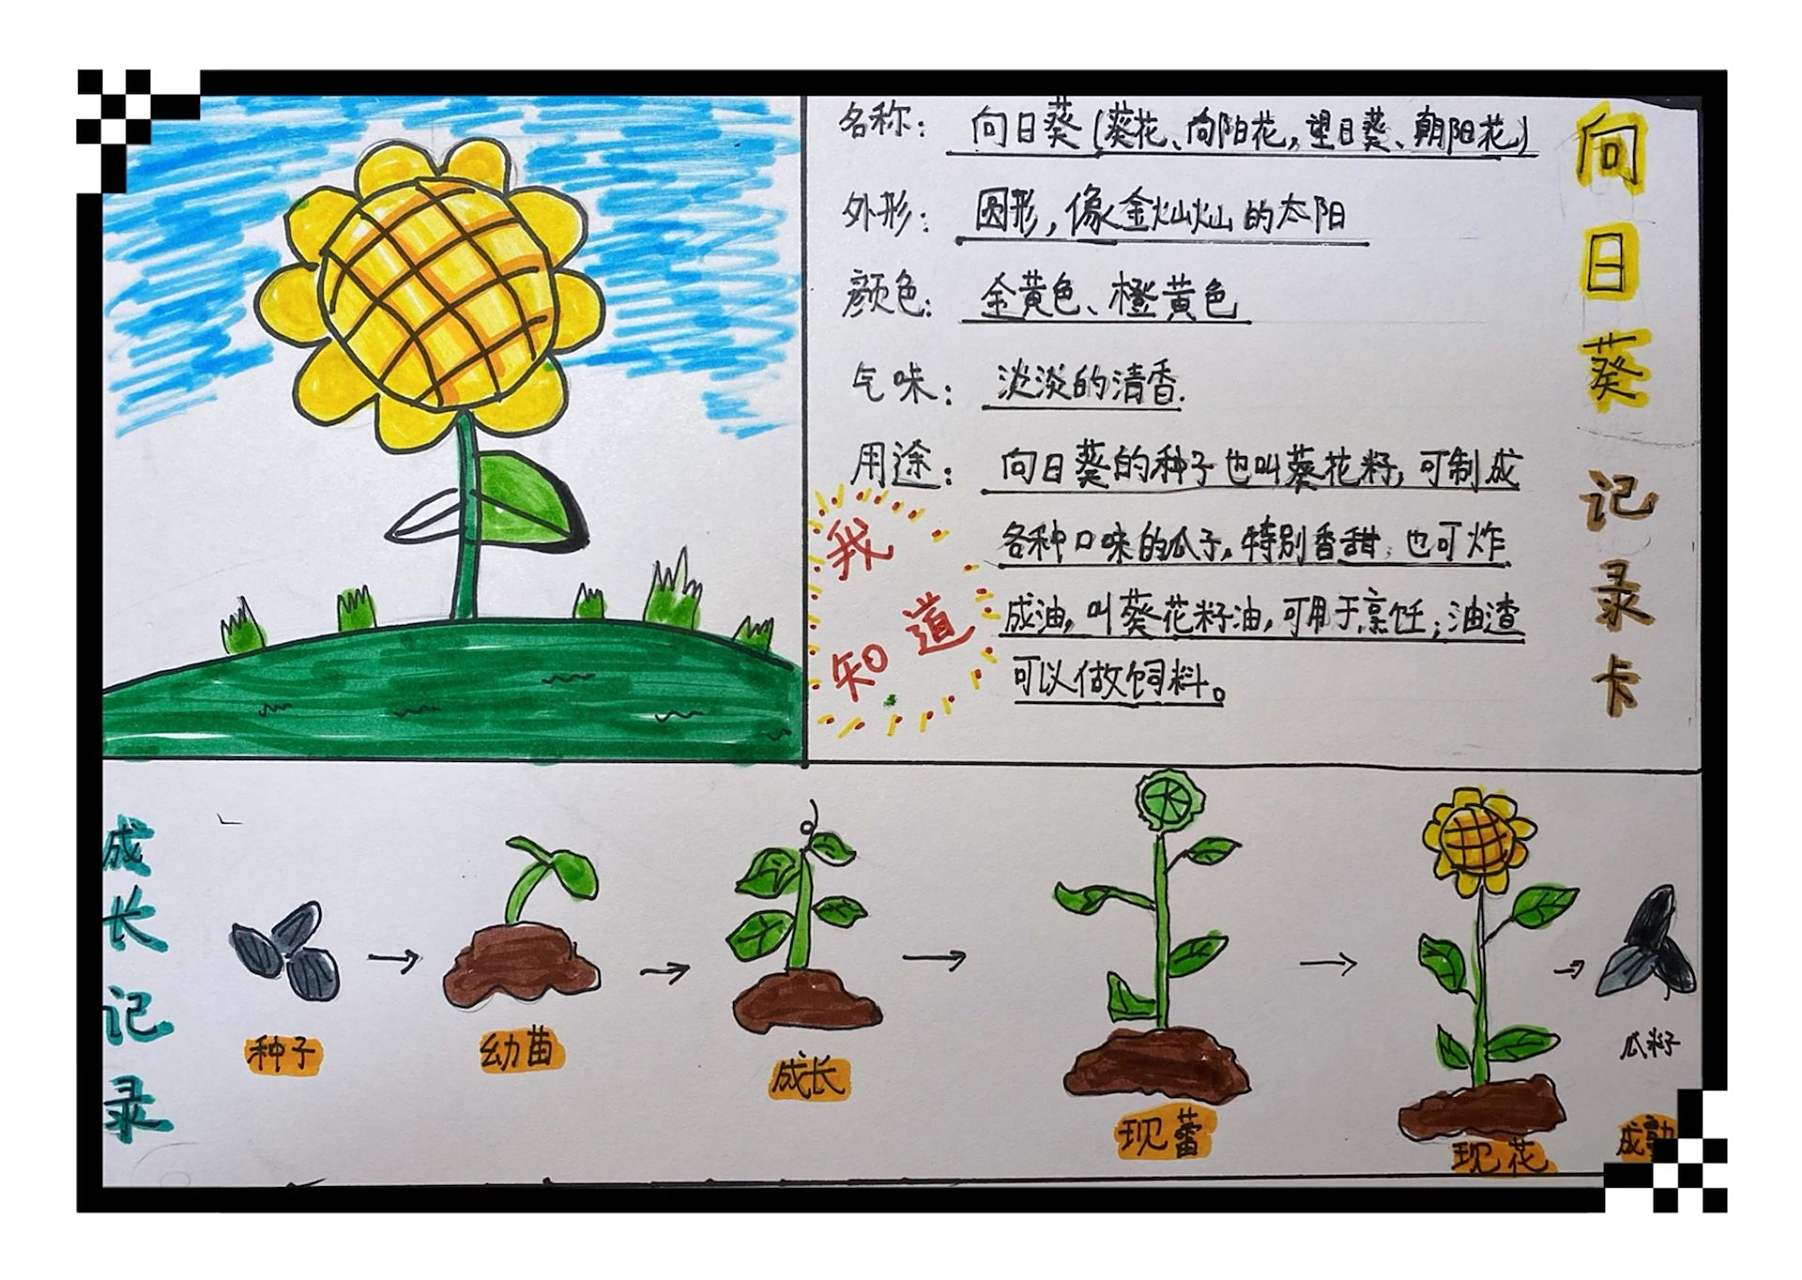 向日葵记录卡
名称：向日葵（葵花、向阳花，望日葵、朝阳花）
外形：圆形，像金灿灿的太阳
颜色：金黄色、橙黄色
气味：淡淡的清香.
用途：向日葵的种子也叫葵花籽，可制成
各种口味的瓜子，特别香甜，也可炸
成油，叫葵花籽油，可用于烹饪；油渣
可以做饲料。
我知道
成长记录
种子
幼苗
成长
现蕾
现花
瓜籽
成熟